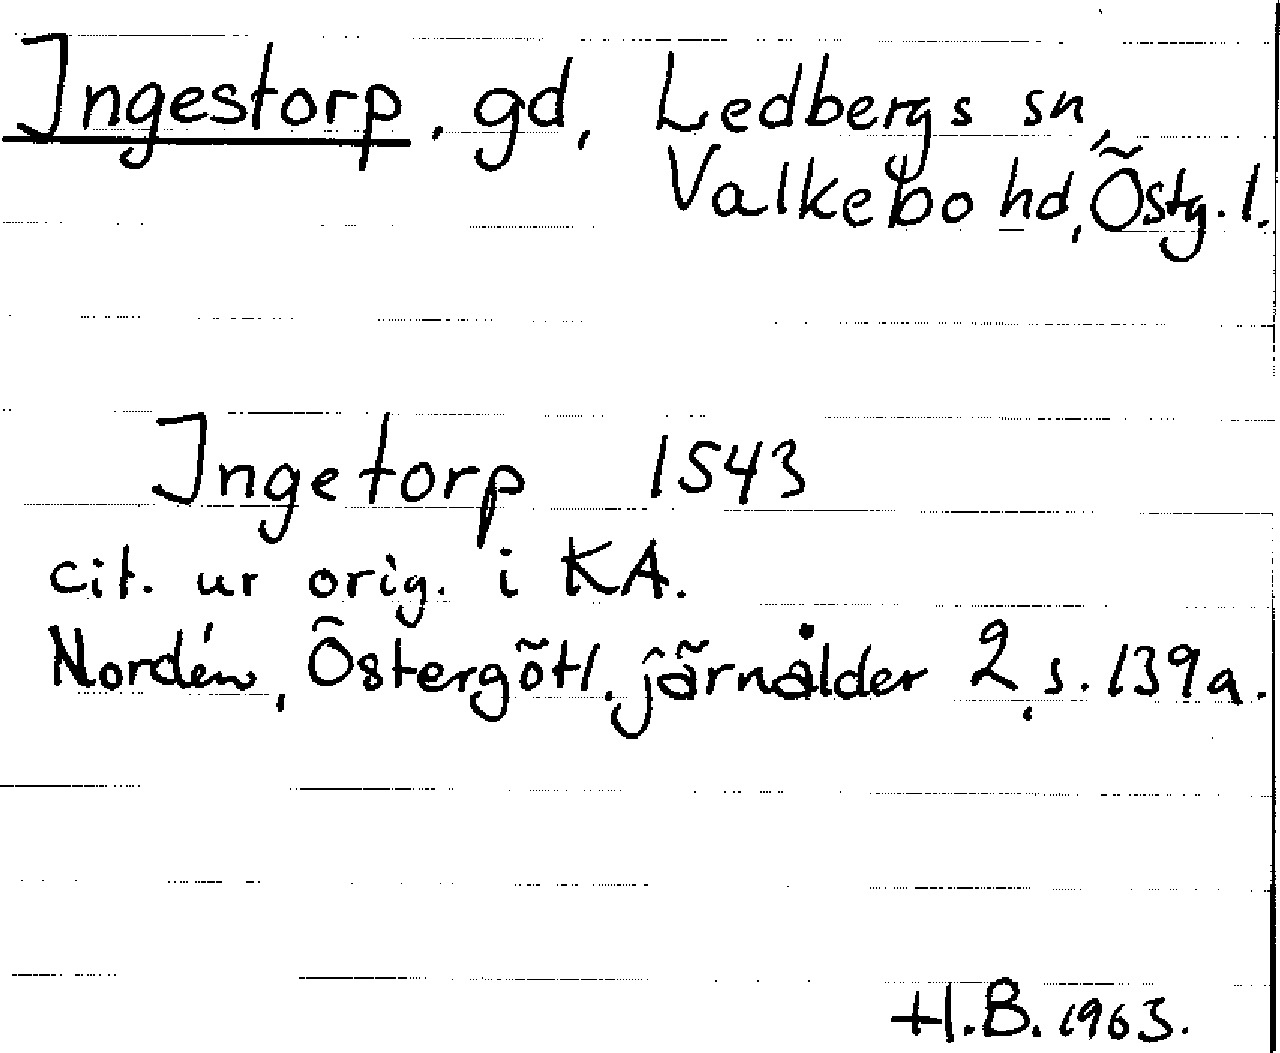 Ingestorp, gd, Ledbergs sn,
Valkebo hd, Östg. l.
Ingetorp 1543
cit. ur orig. i KA.
Nordén, Östergötl. järnålder 2, s. 139a.
H.B. 1963.